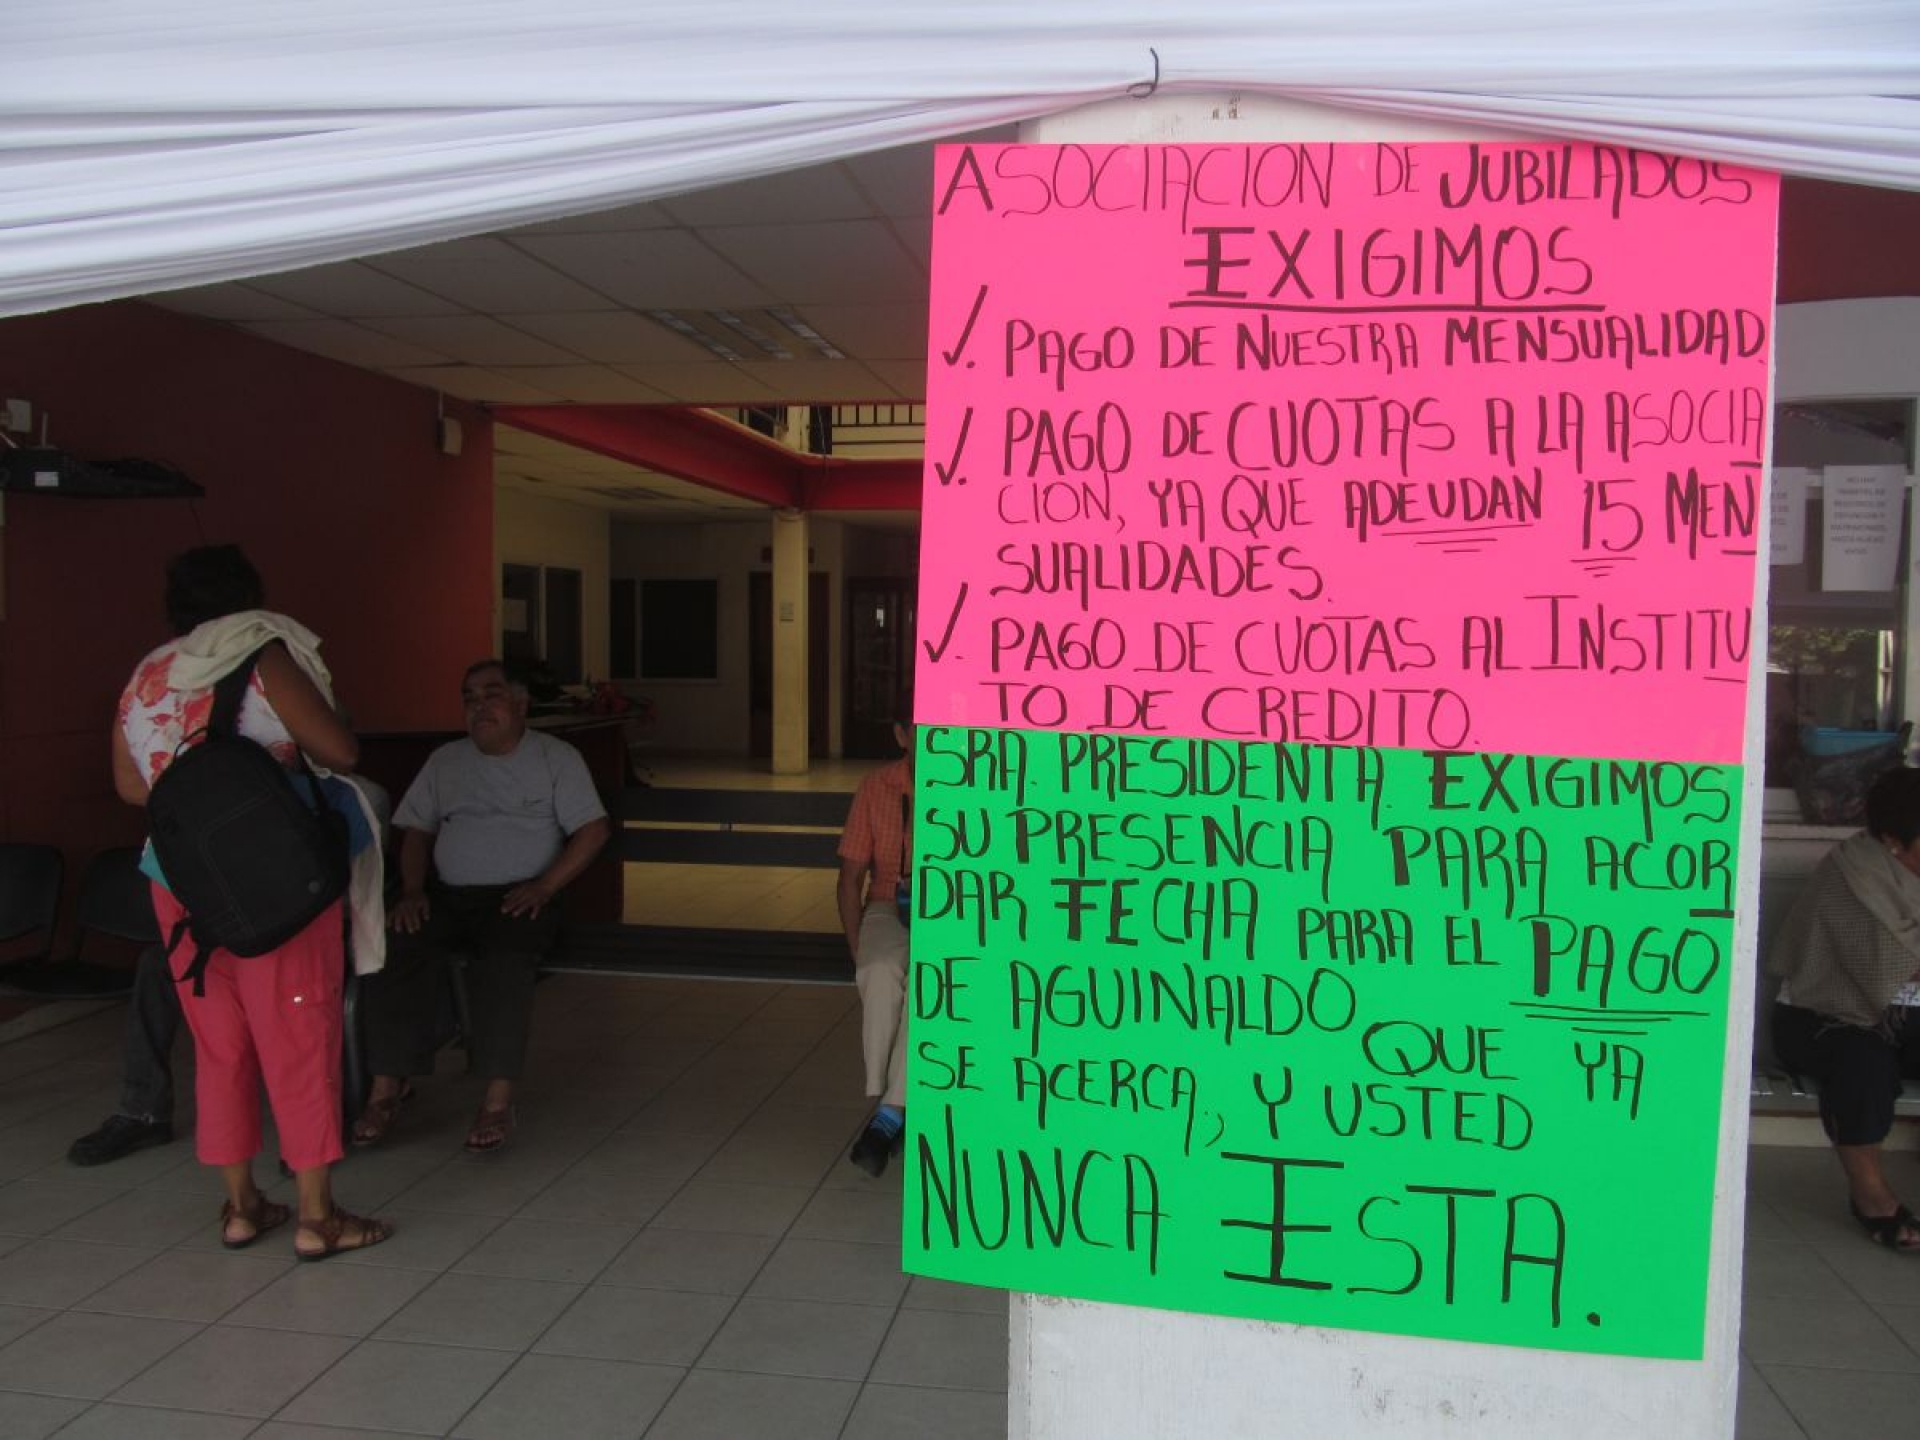 ASOCIACION DE JUBILADOS
EXIGIMOS
✓. PAGO DE NUESTRA MENSUALIDAD.
✓. PAGO DE CUOTAS A LA ASOCIA
CION, YA QUE ADEUDAN 15 MEN
SUALIDADES.
✓. PAGO DE CUOTAS AL INSTITU
TO DE CREDITO.
SRA. PRESIDENTA. EXIGIMOS
SU PRESENCIA PARA ACOR
DAR FECHA PARA EL PAGO
DE AGUINALDO QUE YA
SE ACERCA., Y USTED
NUNCA ESTA.